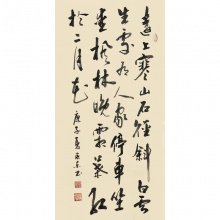 遠上寒山石徑斜白雲
生處有人家停車坐
愛楓林晚霜葉紅
於二月花
庚子夏書